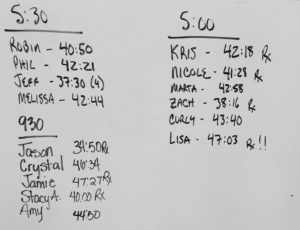 5:30
ROBIN - 40:50
PHIL - 42:21
JEFF - 37:30 (4)
MELISSA - 42:44
930
Jason 34:50 Rx
Crystal 40:34
Jamie 47:27 Rx
Stacy A. 40:00 Rx
Amy 44:50
5:00
KRIS - 42:18 Rx
NICOLE - 41:28 Rx
MARTA - 42:58
ZACH - 38:16 Rx
CURLY - 43:40
LISA - 47:03 Rx !!